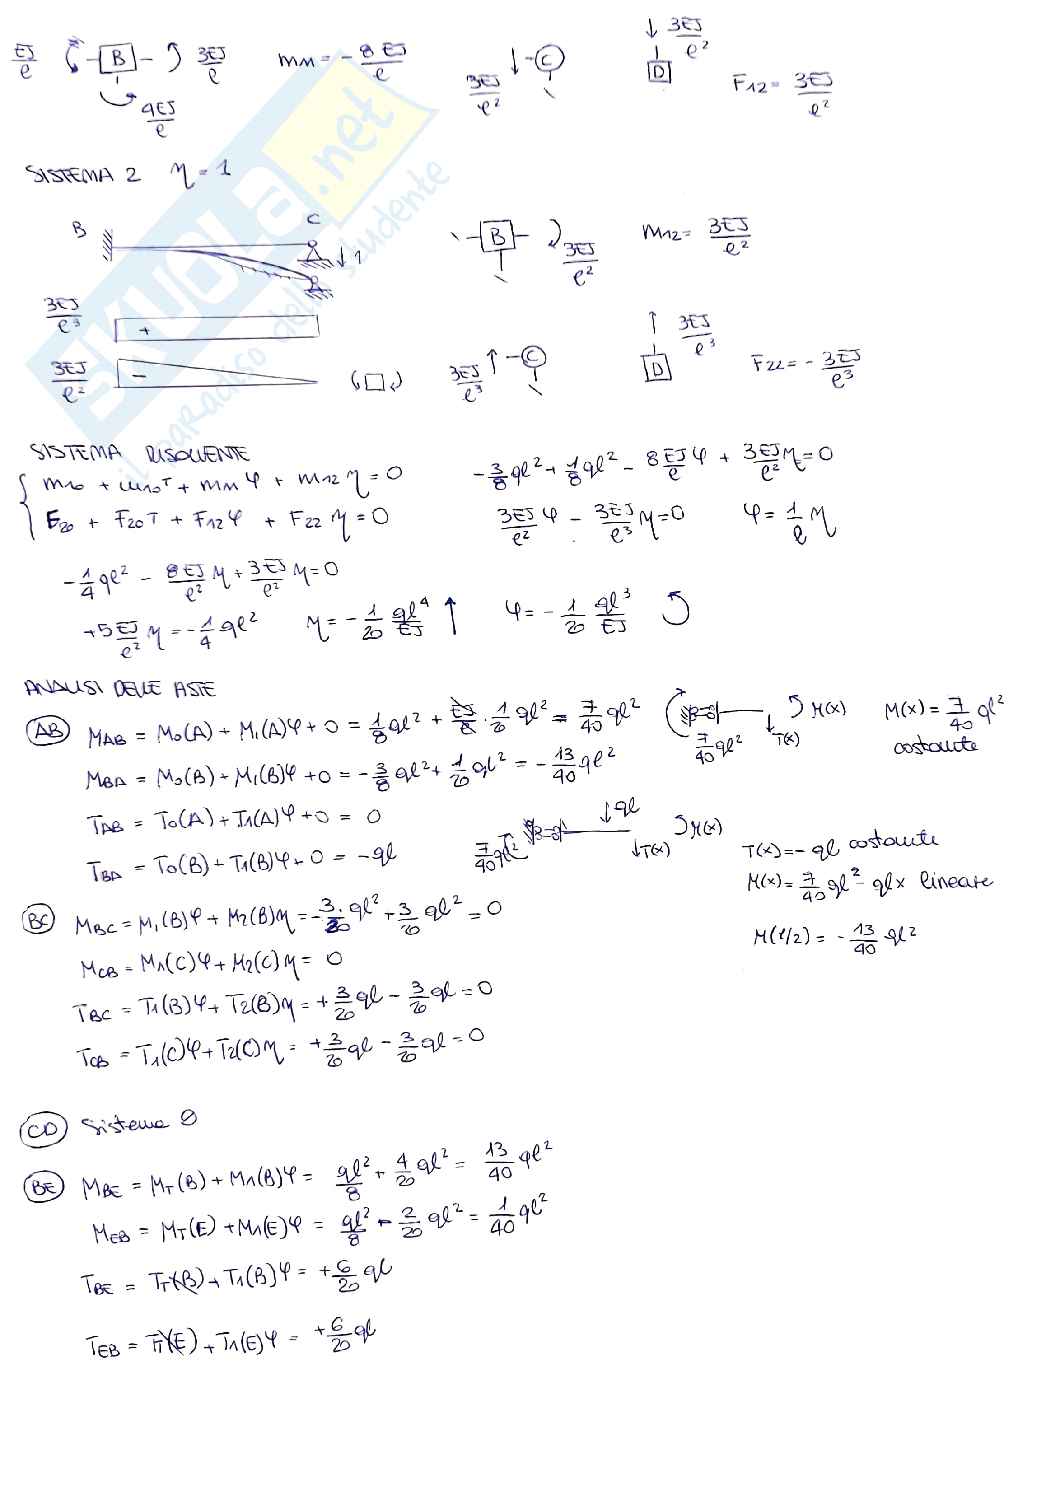 EJ/l B 3EJ/l 4EJ/l m11 = - 8EJ/l 3EJ/l² C 3EJ/l² D F12 = 3EJ/l²
SISTEMA 2 η = 1
B C 1 B 3EJ/l² m12 = 3EJ/l²
3EJ/l³ +
3EJ/l² - 3EJ/l³ C 3EJ/l³ D F22 = - 3EJ/l³
SKUOLA.net
il paradiso dello studente
SISTEMA RISOLVENTE
m10 + m10T + m11 φ + m12 η = 0 - 3/8 ql² + 1/8 ql² - 8EJ/l φ + 3EJ/l² η = 0
F20 + F20T + F12 φ + F22 η = 0 3EJ/l² φ - 3EJ/l³ η = 0 φ = 1/l η
- 1/4 ql² - 8EJ/l² η + 3EJ/l² η = 0
+5 EJ/l² η = - 1/4 ql² η = - 1/20 ql⁴/EJ ↑ φ = - 1/20 ql³/EJ
ANALISI DELLE ASTE
AB MAB = M0(A) + M1(A)φ + 0 = 1/8 ql² + 1/20 ql² = 7/40 ql² 7/40 ql² T(x) M(x) M(x) = 7/40 ql² costante
MBA = M0(B) + M1(B)φ + 0 = - 3/8 ql² + 1/20 ql² = - 13/40 ql²
TAB = T0(A) + T1(A)φ + 0 = 0 7/40 ql² ql T(x) M(x)
TBA = T0(B) + T1(B)φ + 0 = - ql T(x) = - ql costante
M(x) = 7/40 ql² - qlx lineare
BC MBC = M1(B)φ + M2(B)η = - 3/20 ql² + 3/20 ql² = 0 M(l/2) = - 13/40 ql²
MCB = M1(C)φ + M2(C)η = 0
TBC = T1(B)φ + T2(B)η = + 3/20 ql - 3/20 ql = 0
TCB = T1(C)φ + T2(C)η = + 3/20 ql - 3/20 ql = 0
CD Sistema 0
BE MBE = MT(B) + M1(B)φ = ql²/8 + 4/20 ql² = 13/40 ql²
MEB = MT(E) + M1(E)φ = ql²/8 - 2/20 ql² = 1/40 ql²
TBE = TT(B) + T1(B)φ = + 6/20 ql
TEB = TT(E) + T1(E)φ = + 6/20 ql